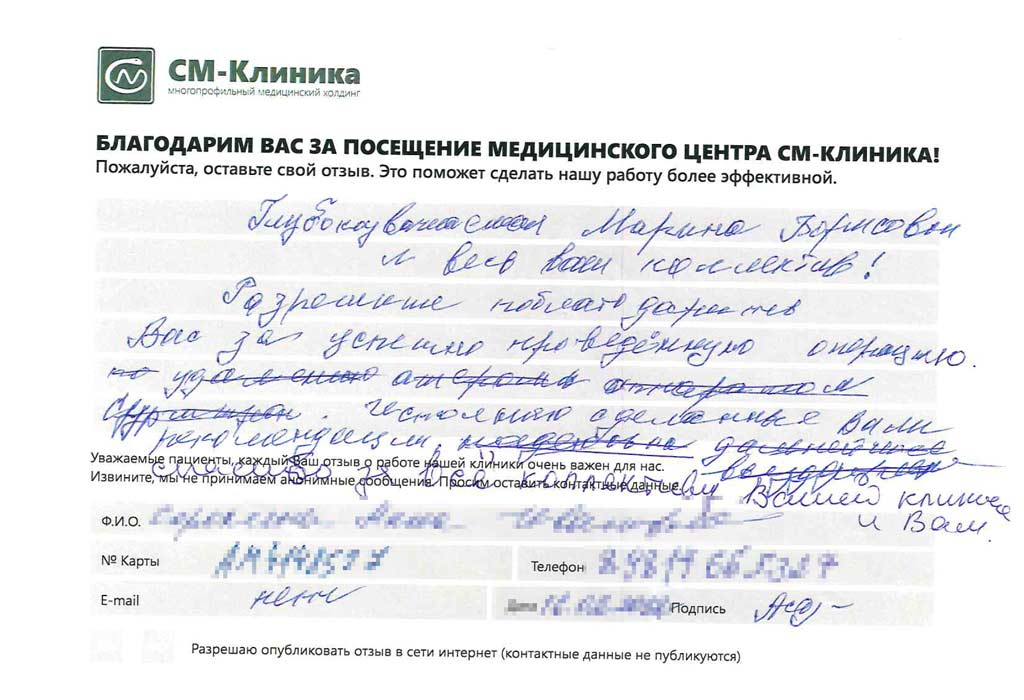 СМ-Клиника
многопрофильный медицинский холдинг
БЛАГОДАРИМ ВАС ЗА ПОСЕЩЕНИЕ МЕДИЦИНСКОГО ЦЕНТРА СМ-КЛИНИКА!
Пожалуйста, оставьте свой отзыв. Это поможет сделать нашу работу более эффективной.
Глубокоуважаемая Марина Борисовна
и весь ваш коллектив!
Разрешите поблагодарить
Вас за успешно проведённую операцию.
по удалению
сделанные Вами
рекомендации,
Уважаемые пациенты, каждый Ваш отзыв о работе нашей клиники очень важен для нас.
спасибо за всё коллективу Вашей клиники
Извините, мы не принимаем анонимные сообщения. Просим оставить контактные данные.
и Вам.
Ф.И.О.
№ Карты Телефон
E-mail нету Подпись
Разрешаю опубликовать отзыв в сети интернет (контактные данные не публикуются)